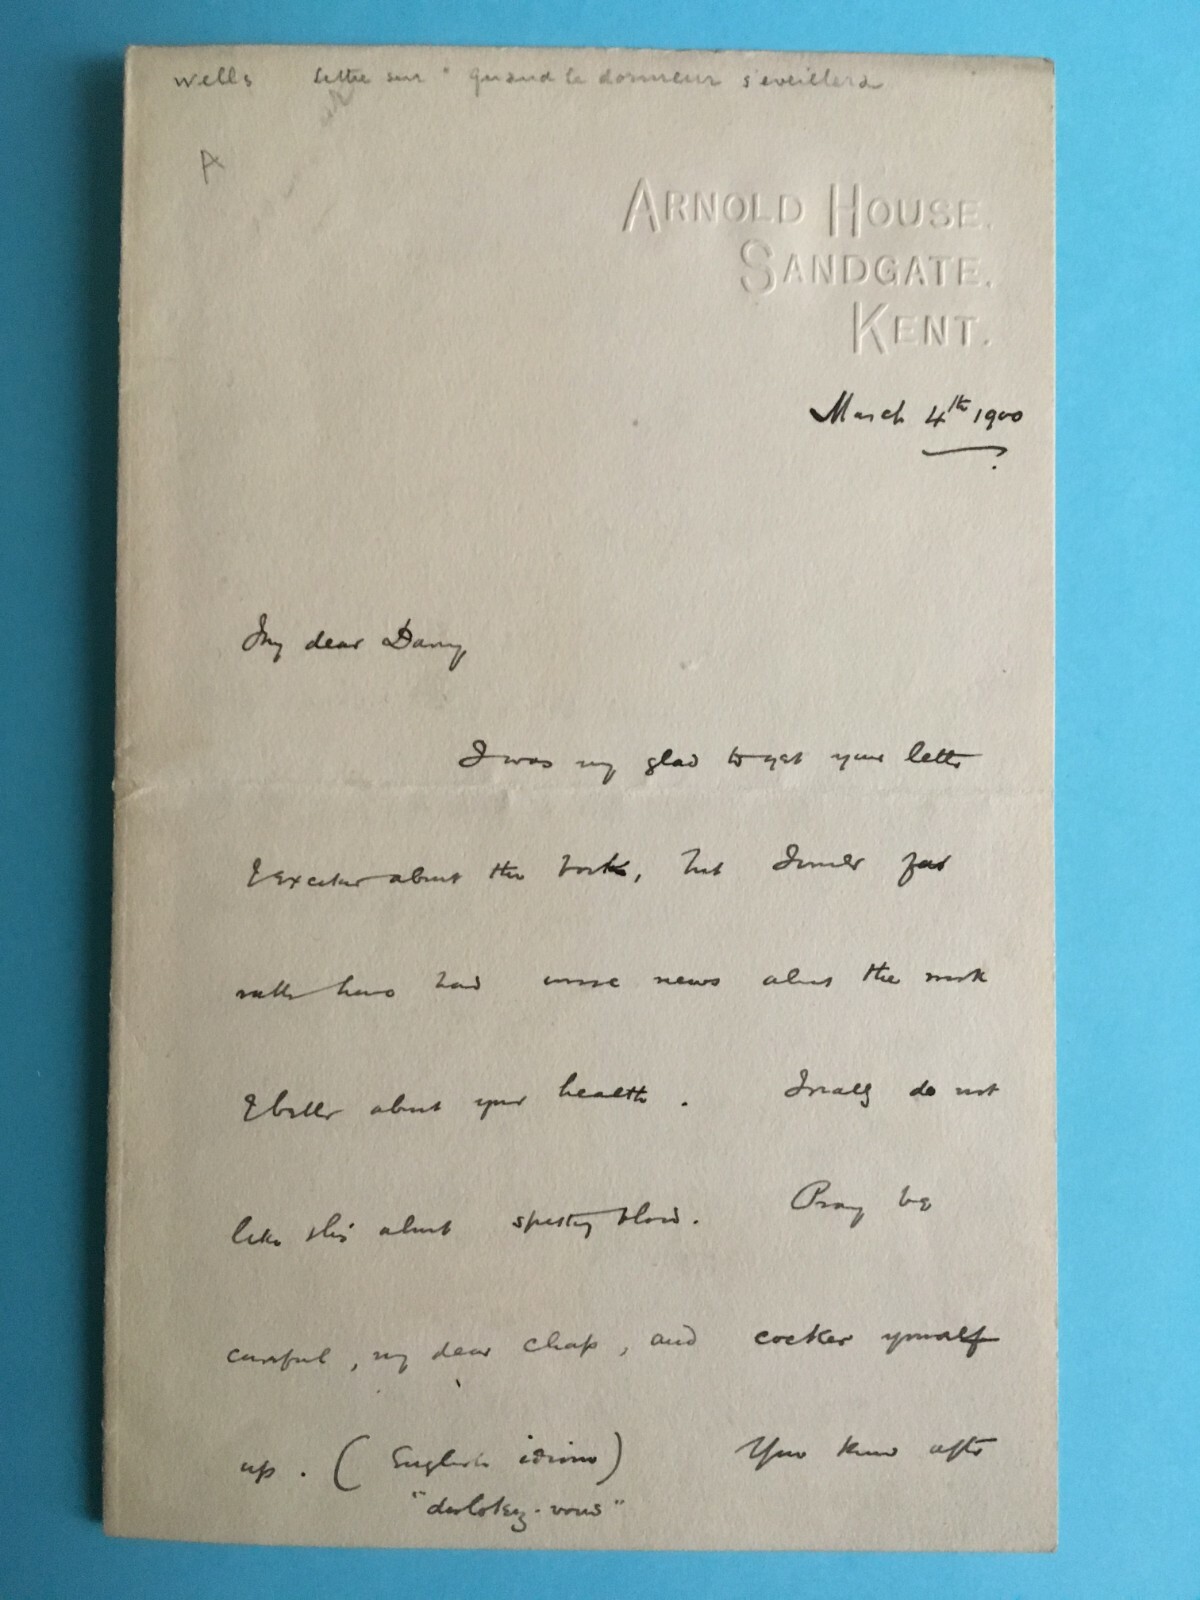 wells lettre sur "quand le dormeur s'eveillera
A
ARNOLD HOUSE.
SANDGATE.
KENT.
March 4th 1900
My dear Davray
I was very glad to get your letter
& excited about the book, but I would far
rather have had worse news about the work
& better about your health. I really do not
like this about spitting blood. Pray be
careful, my dear chap, and cocker yourself
up. (English idiom) You know after
"dorlotez-vous"